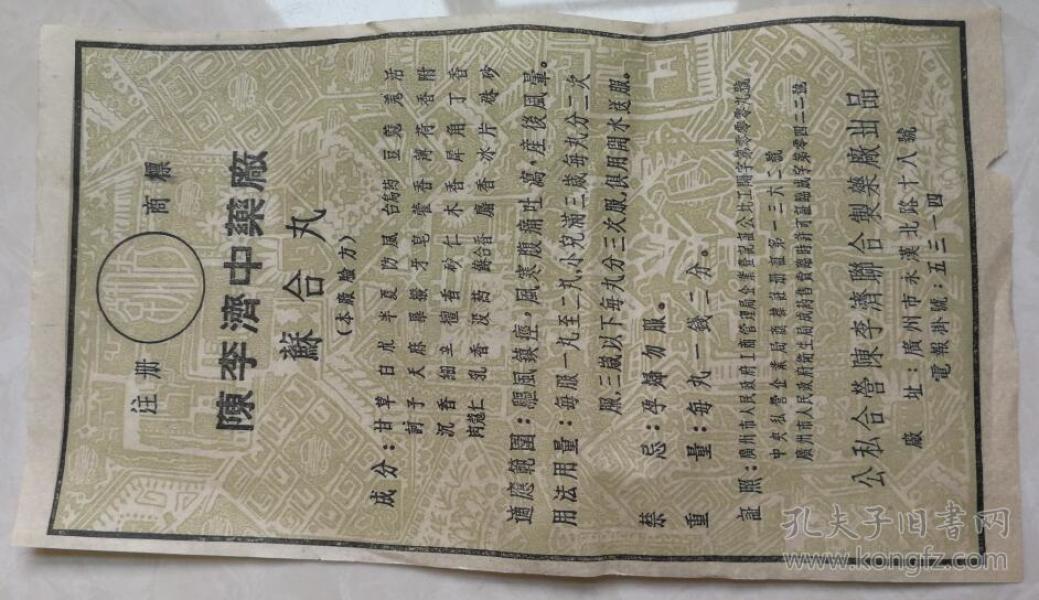 注册 商標
陳李濟中藥廠
蘇合丸
（本廠驗方）
成分：甘草 白朮 半夏 防風 白芷 豆蔻 羌活
訶子 天麻 皂 藿香 薄荷 香附
沉香 細辛 檀香 砂仁 木香 犀角 丁香
肉蔻仁 乳香 沒药 蘇合香 麝香 冰片 硃砂
適應範圍：驅風鎮痙，風寒腹痛吐瀉，産後風暈。
用法用量：每服一丸至二丸，小兒滿三歲每丸分二次
服，三歲以下每丸分三次服，俱用開水送服。
禁忌：孕婦勿服。
重量：每丸一錢二分。
証照：廣州市人民政府工商管理局企業登記証公北工開字第零零零九號
中央私營企業局商標註册証第一三六二號
廣州市人民政府衛生局成葯售賣臨時許可証臨成字第零四二二號
公私合營陳李濟聯合製藥廠出品
廠址：廣州市永漢北路十八號
電報掛號：五三一四
孔夫子旧书网
www.kongfz.com